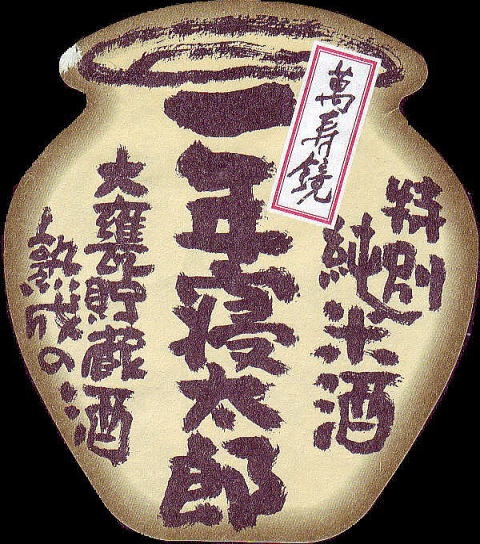 萬寿鏡
特別
純米酒
一年寝太郎
大甕貯蔵
熟成の酒